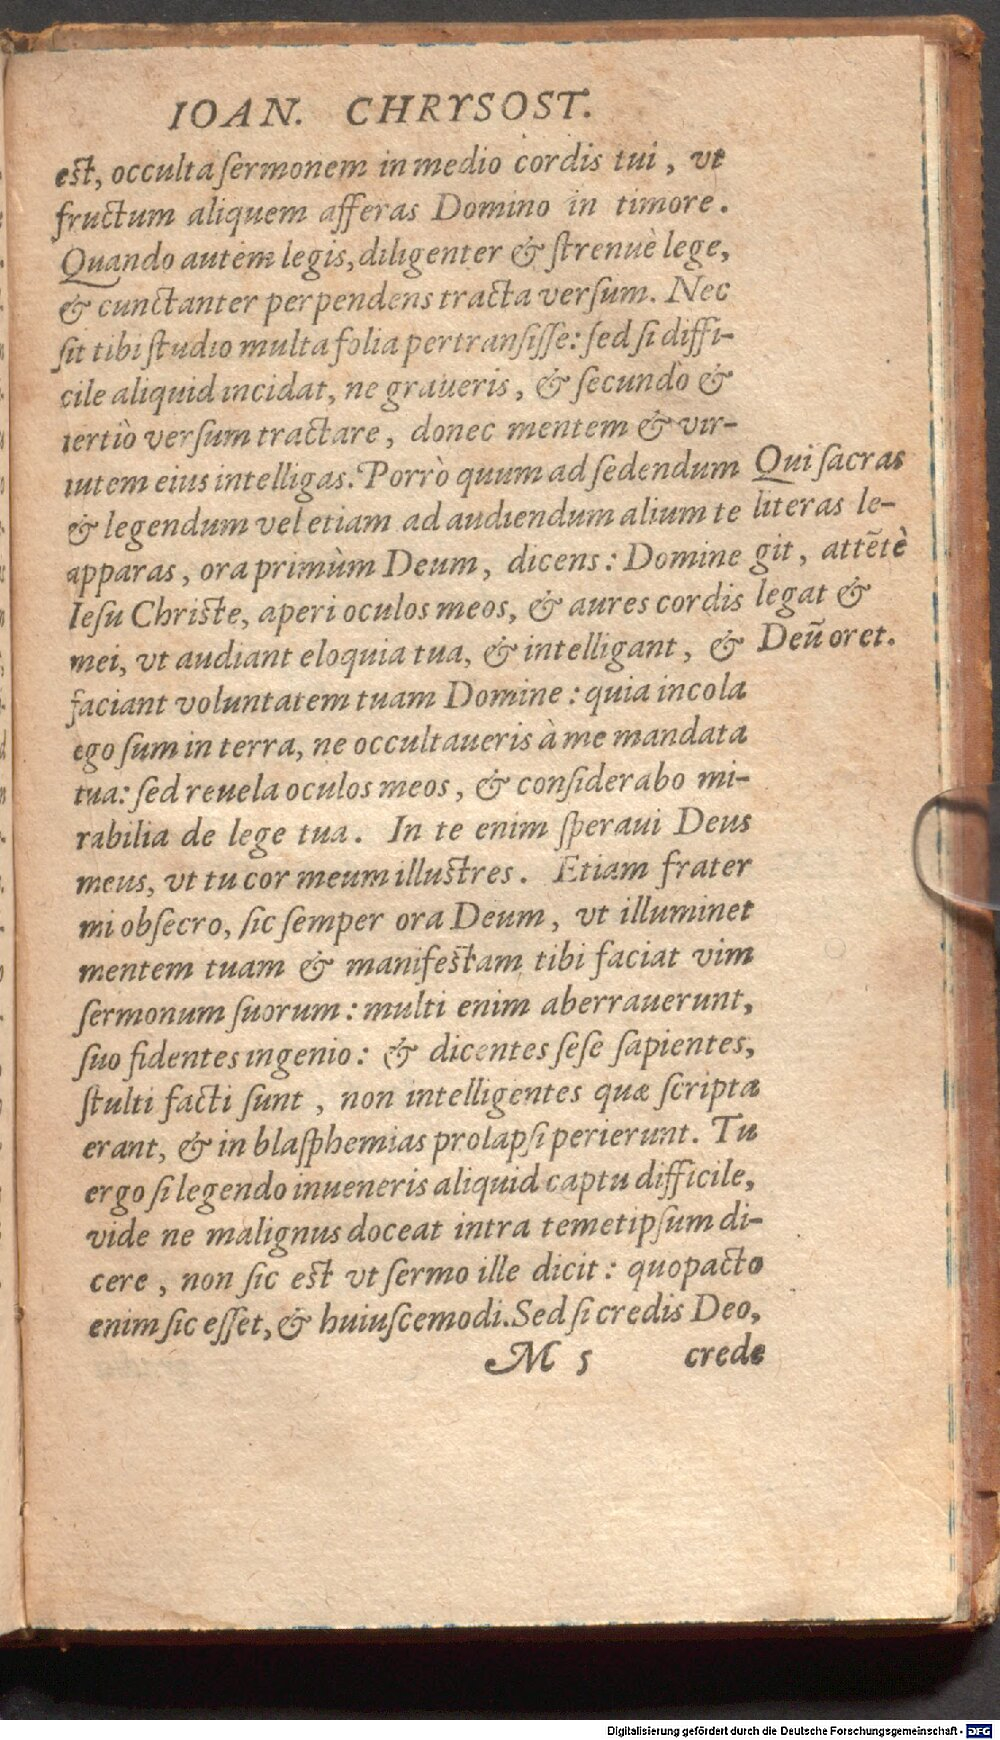 IOAN. CHRYSOST.
est, occulta ſermonem in medio cordis tui, vt
fructum aliquem afferas Domino in timore.
Quando autem legis, diligenter & ſtrenuè lege,
& cunctanter perpendens tracta verſum. Nec
ſit tibi ſtudio multa folia pertranſiſſe: ſed ſi diffi-
cile aliquid incidat, ne graueris, & ſecundò &
tertiò verſum tractare, donec mentem & vir-
tutem eius intelligas. Porrò quum ad ſedendum
& legendum vel etiam ad audiendum alium te
apparas, ora primùm Deum, dicens: Domine
Ieſu Chriſte, aperi oculos meos, & aures cordis
mei, vt audiant eloquia tua, & intelligant, &
faciant voluntatem tuam Domine: quia incola
ego ſum in terra, ne occultaueris à me mandata
tua: ſed reuela oculos meos, & conſiderabo mi-
rabilia de lege tua. In te enim ſperaui Deus
meus, vt tu cor meum illuſtres. Etiam frater
mi obſecro, ſic ſemper ora Deum, vt illuminet
mentem tuam & manifeſtam tibi faciat vim
ſermonum ſuorum: multi enim aberrauerunt,
ſuo fidentes ingenio: & dicentes ſeſe ſapientes,
ſtulti facti ſunt, non intelligentes quæ ſcripta
erant, & in blaſphemias prolapſi perierunt. Tu
ergo ſi legendo inueneris aliquid captu difficile,
vide ne malignus doceat intra temetipſum di-
cere, non ſic eſt vt ſermo ille dicit: quopacto
enim ſic eſſet, & huiuſcemodi. Sed ſi credis Deo,
M 5 crede
Qui ſacras
literas le-
git, attētè
legat &
Deū oret.
Digitalisierung gefördert durch die Deutsche Forschungsgemeinschaft - DFG